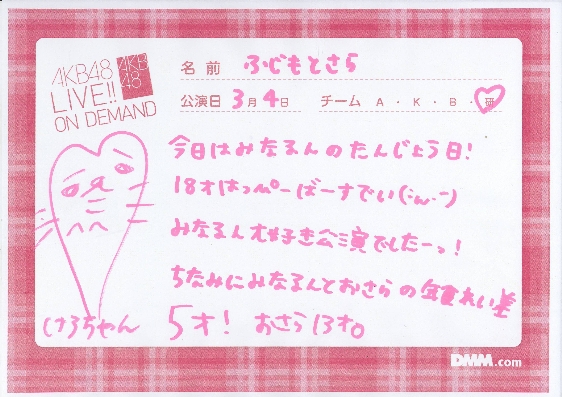 AKB48
LIVE!!
ON DEMAND
AKB
48
名前 ふじもとさら
公演日 3月4日 チーム A・K・B・研
今日はみなるんのたんじょう日!
18才はっぴーばーすでい(・ω・)
みなるん大好き公演でしたーっ!
ちなみにみなるんとおさらの年れい差
5才! おさら13才。
けろちゃん
DMM.com